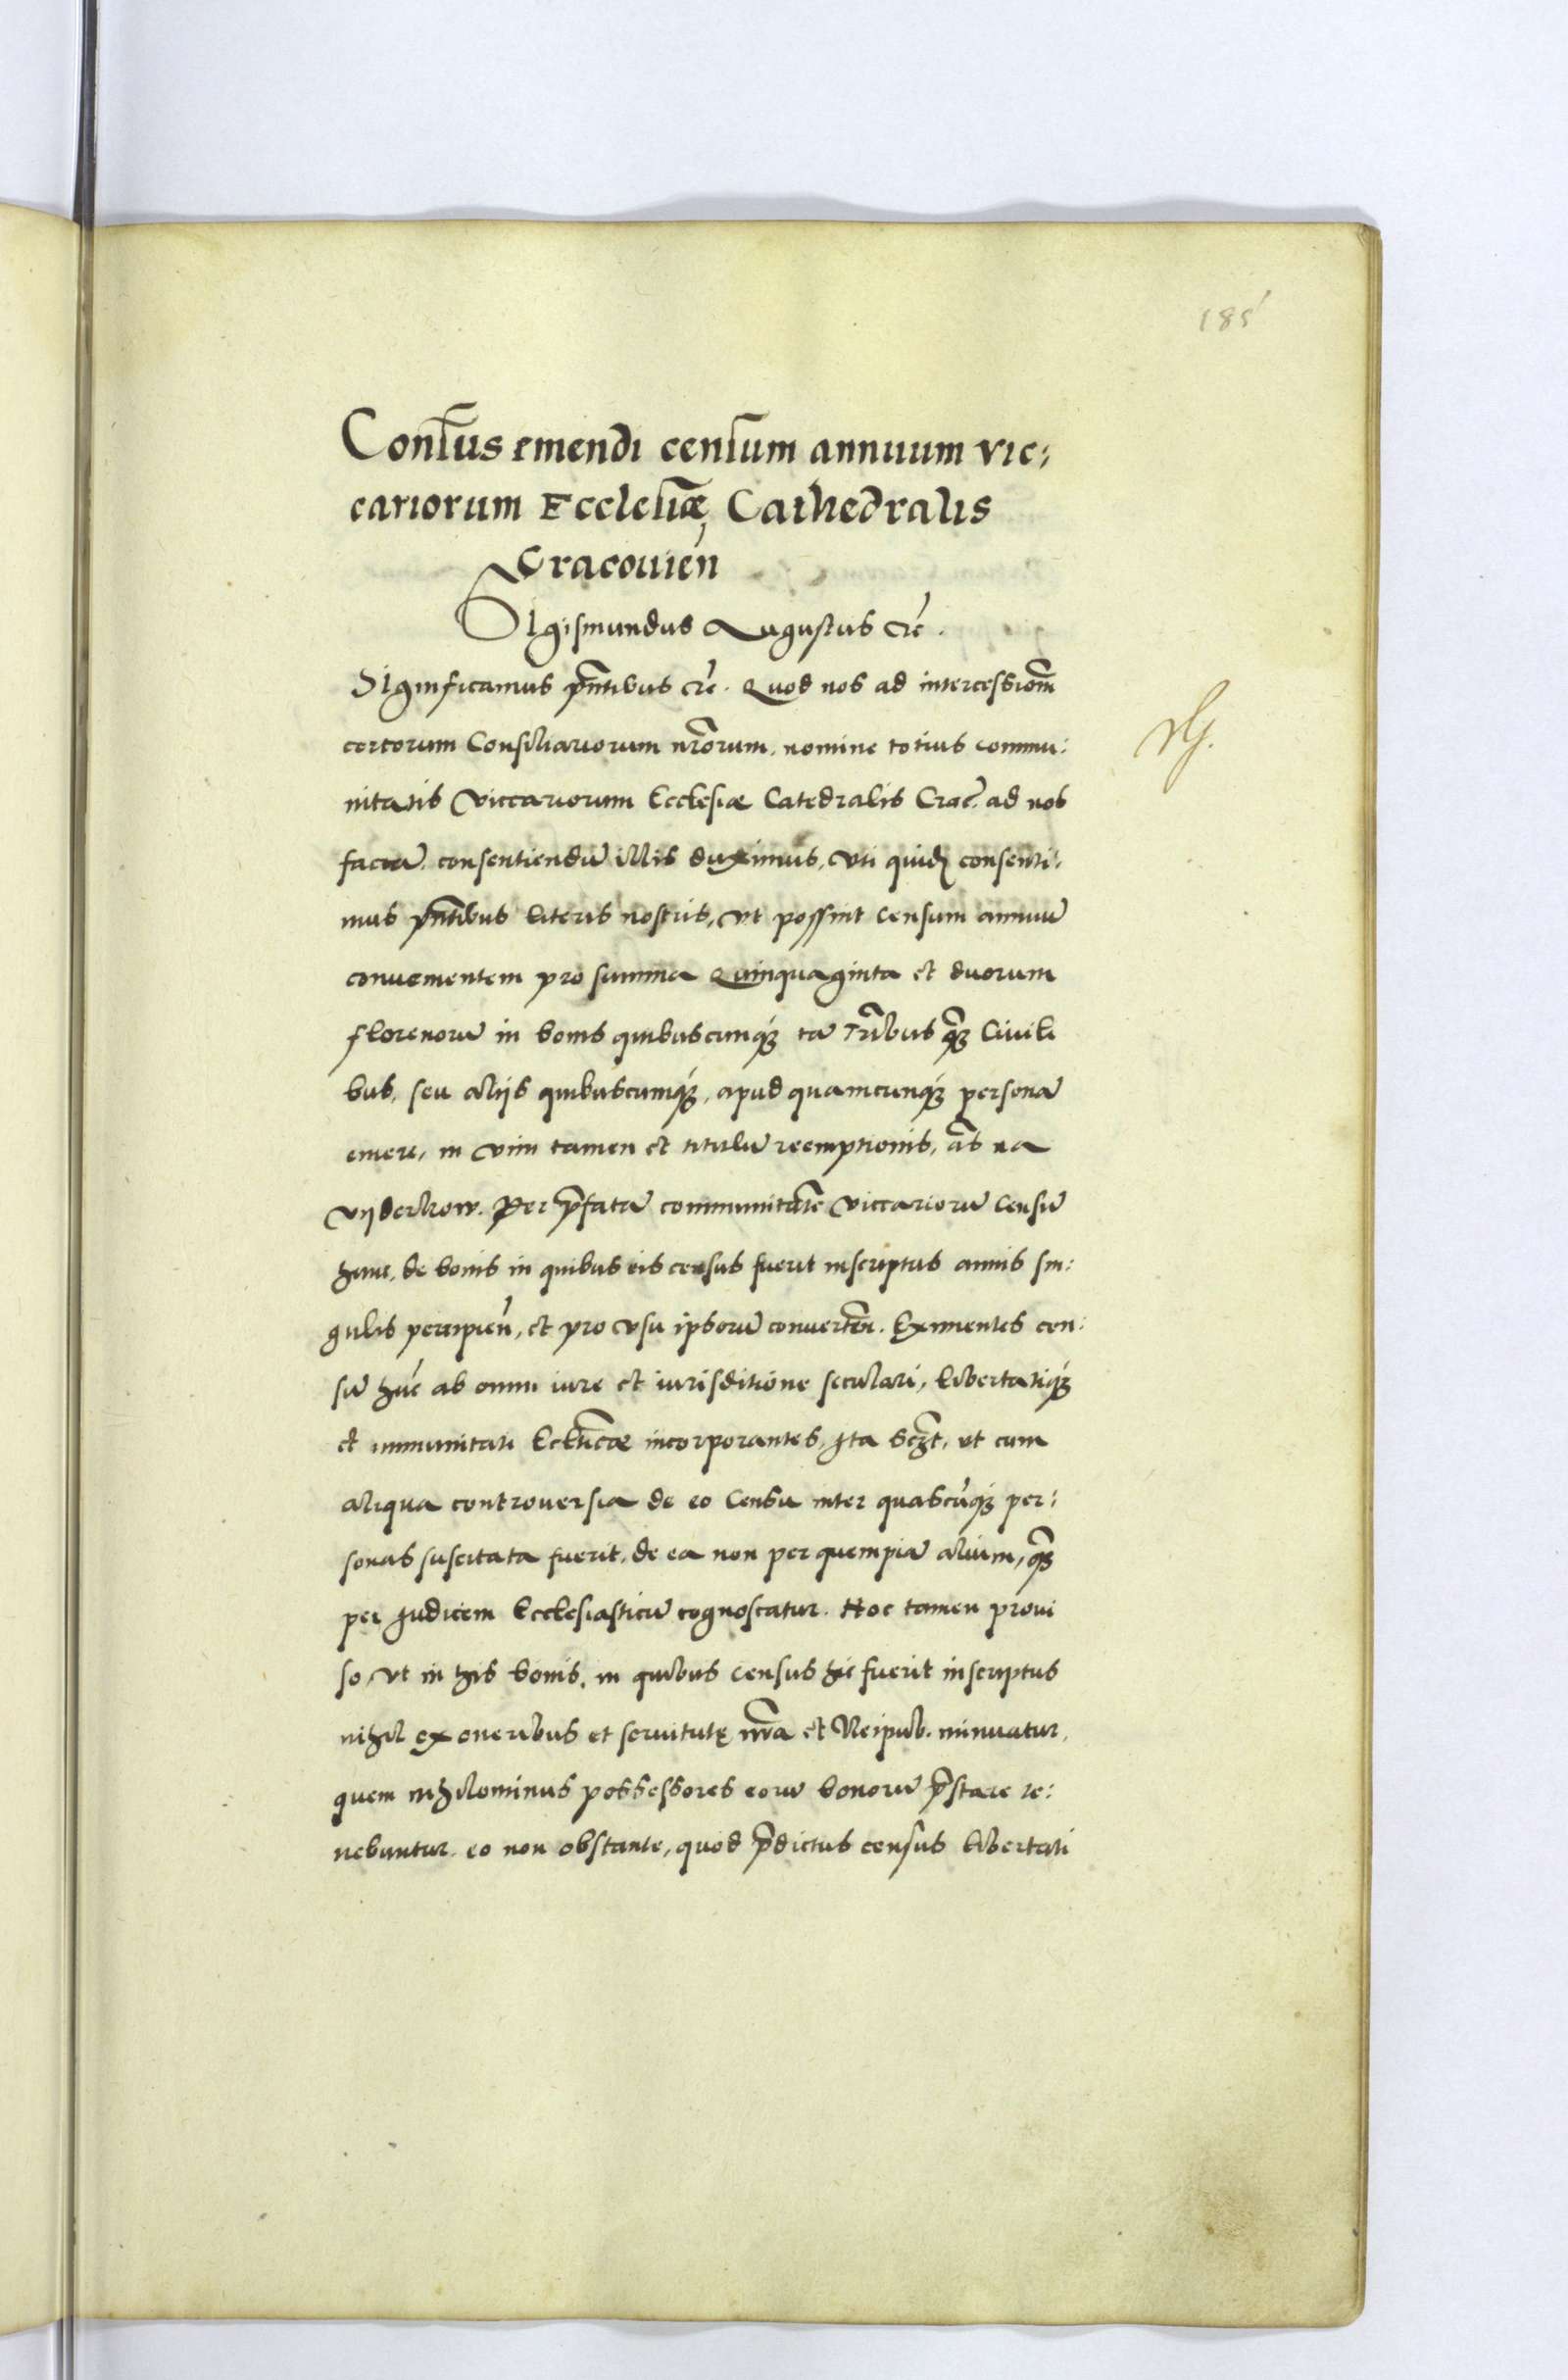 185
Consēus emendi censum annuum vic:
cariorum Ecclesiæ Cathedralis
Cracouień
Sigismundus Augustus etc̄.
Significamus pn̄tibus etc̄. Quod nos ad intercessionē
certorum Consiliariorum nr̄orum, nomine totius commu:
nitatis viccariorum Ecclesiæ Catedralis Crac̄. ad nos
factā, consentiendū illis duximus, vti quidē consenti:
mus pn̄tibus literis nostris, vt possint censum annuū
conuenientem pro summa Quinquaginta et duorum
florenorū in bonis quibuscunq́ʒ tā Tr̄ibus q̄ʒ Ciuili
bus, seu alijs quibuscumq́ʒ, apud quamcunq́ʒ personā
emere, in vim tamen et titulū reemptionis, ał̄s na
vijderkow. Per p̄fatā communitatē viccariorū censū
hunc, de bonis in quibus eis census fuerit inscriptus annis sin:
gulis percipień, et pro vsu ipsorū conuerteń. Eximentes cen:
sū hūc ab omni iure et iurisditione seculari, libertatiq́ʒ
et immunitati Eccłticæ incorporantes, Ita sczt̄, vt cum
aliqua controuersia de eo censu inter quascūq́ʒ per:
sonas suscitata fuerit, de ea non per quempiā alium, q̄ʒ
per Iudicem Ecclesiasticū cognoscatur. Hoc tamen proui
so, vt in his bonis, in quibus census hic fuerit inscriptus
nihil ex oneribus et seruitute nr̄a et Reipub. minuatur,
quem nihilominus possessores eorū bonorū p̄stare te:
nebuntur, eo non obstante, quod p̄dictus census libertati